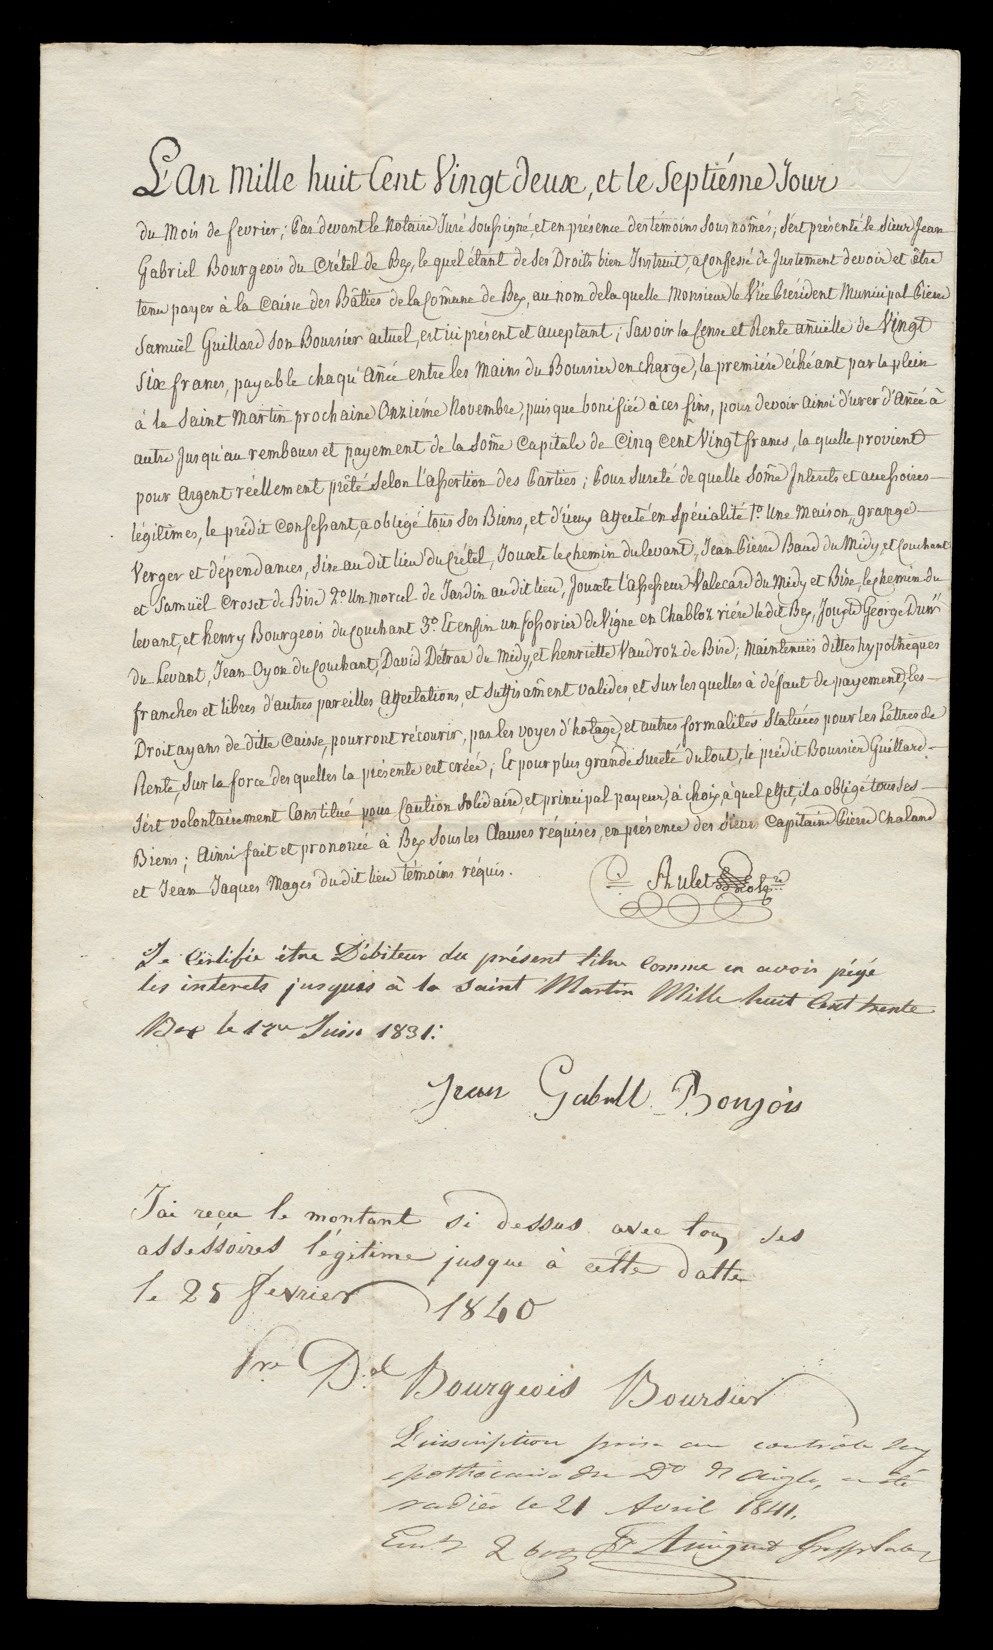 L'An Mille huit Cent Vingt deux, et le Septiéme Jour
du Mois de fevrier; Par devant le Notaire Juré Soussigné, et en présence des témoins Sous nom̃és; S'ést présenté le Sieur Jean
Gabriel Bourgeois du Crétel de Bex, le quel étant de Ses Droits bien Instruit, a Confessé de Justement devoir et être
tenu payer à la Caisse des Bâties de la Com̃une de Bex, au nom de la quelle Monsieur le Vice Président Municipal Pierre
Samuël Guillard Son Boursier actuel, est ici présent et acceptant; Savoir la Cense et Rente añuëlle de Vingt
Six francs, payable chaqu'Añée entre les Mains du Boursier en charge, la premiére échéant par le plein
à la Saint Martin prochaine Onziéme Novembre, puisque bonifiée à ces fins, pour devoir ainsi d'urer d'Añée à
autre Jusqu'au rembours et payement de la Som̃e Capitale de Cinq Cent Vingt francs, la quelle provient
pour Argent réellement prêté Selon l'assertion des Parties; Pour Sureté de quelle Som̃e Interets et accessoires
légitimes, le prédit Confessant, a obligé tous Ses Biens, et d'iceux affecté en Spécialité 1º. Une Maison, grange
Verger et dépendances, Sise au dit lieu du Crétel, Jouxte le chemin du levant, Jean Pierre Baud du Midy, et Couchant
et Samuël Croset de Bise 2º. Un morcel de Jardin au dit lieu, Jouxte l'assesseur Valecard du Midy et Bise, le chemin du
levant, et henry Bourgeois du Couchant 3º. Et enfin un fossorier de Vigne en Chabloz riére le dit Bex, Jouxte George
du Levant, Jean Oyon du Couchant, David Detraz du Midy, et henriette Vaudroz de Bise; Maintenuës dittes hypothèques
franches et libres d'autres pareilles affectations, et Suffisam̃ent valides et Sur les quelles à défaut de payement, les
Droit ayans de ditte Caisse, pourront récourir, par les voyes d'hotage, et autres formalités Statuées pour les Lettres de
Rente, Sur la force des quelles la présente est créée; Et pour plus grande Sureté du tout, le prédit Boursier Guillard
S'ést volontairement Constitué pour Caution Solidaire, et principal payeur, à choix, à quel effet, il a obligé tous Ses
Biens; Ainsi fait et prononcé à Bex Sous les Clauses réquises, en présence des Sieurs Capitaine Pierre Chaland
et Jean Jaques Mages du dit lieu témoins réquis.
Je Certifie être Débiteur du présent titre Comme en avoir péyé
les interets jusques à la Saint Martin Mille huit Cent trente
Bex le Juin 1831:
Jean Gabriell Bourjois
J'ai reçu le montant si dessus avec tous ses
assessoires légitime jusque à cette datte
le 25 fevrier 1840
Pre Dd Bourgeois Boursier
L'inscription prise au controle hy
pothécaire du Dt d'Aigle, a été
radiée le 21 Avril 1841.